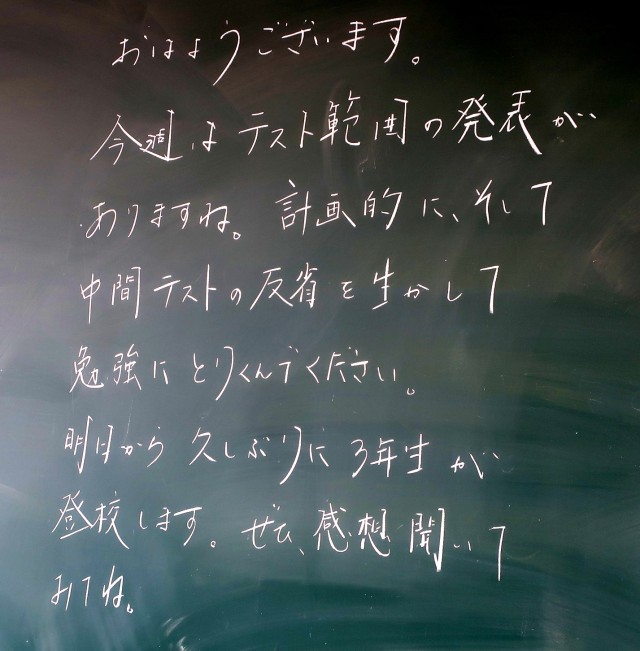 おはようございます。
今週はテスト範囲の発表が
ありますね。計画的に、そして
中間テストの反省を生かして
勉強にとりくんでください。
明日から久しぶりに3年生が
登校します。ぜひ、感想聞いて
みてね。